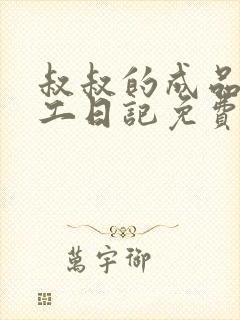 叔叔的成品
工日記免費
萬宇御